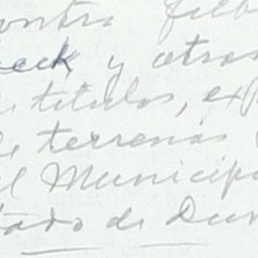 ontra
eck, y otros
titulos,
de terrenos
el Municip
tado de Dur